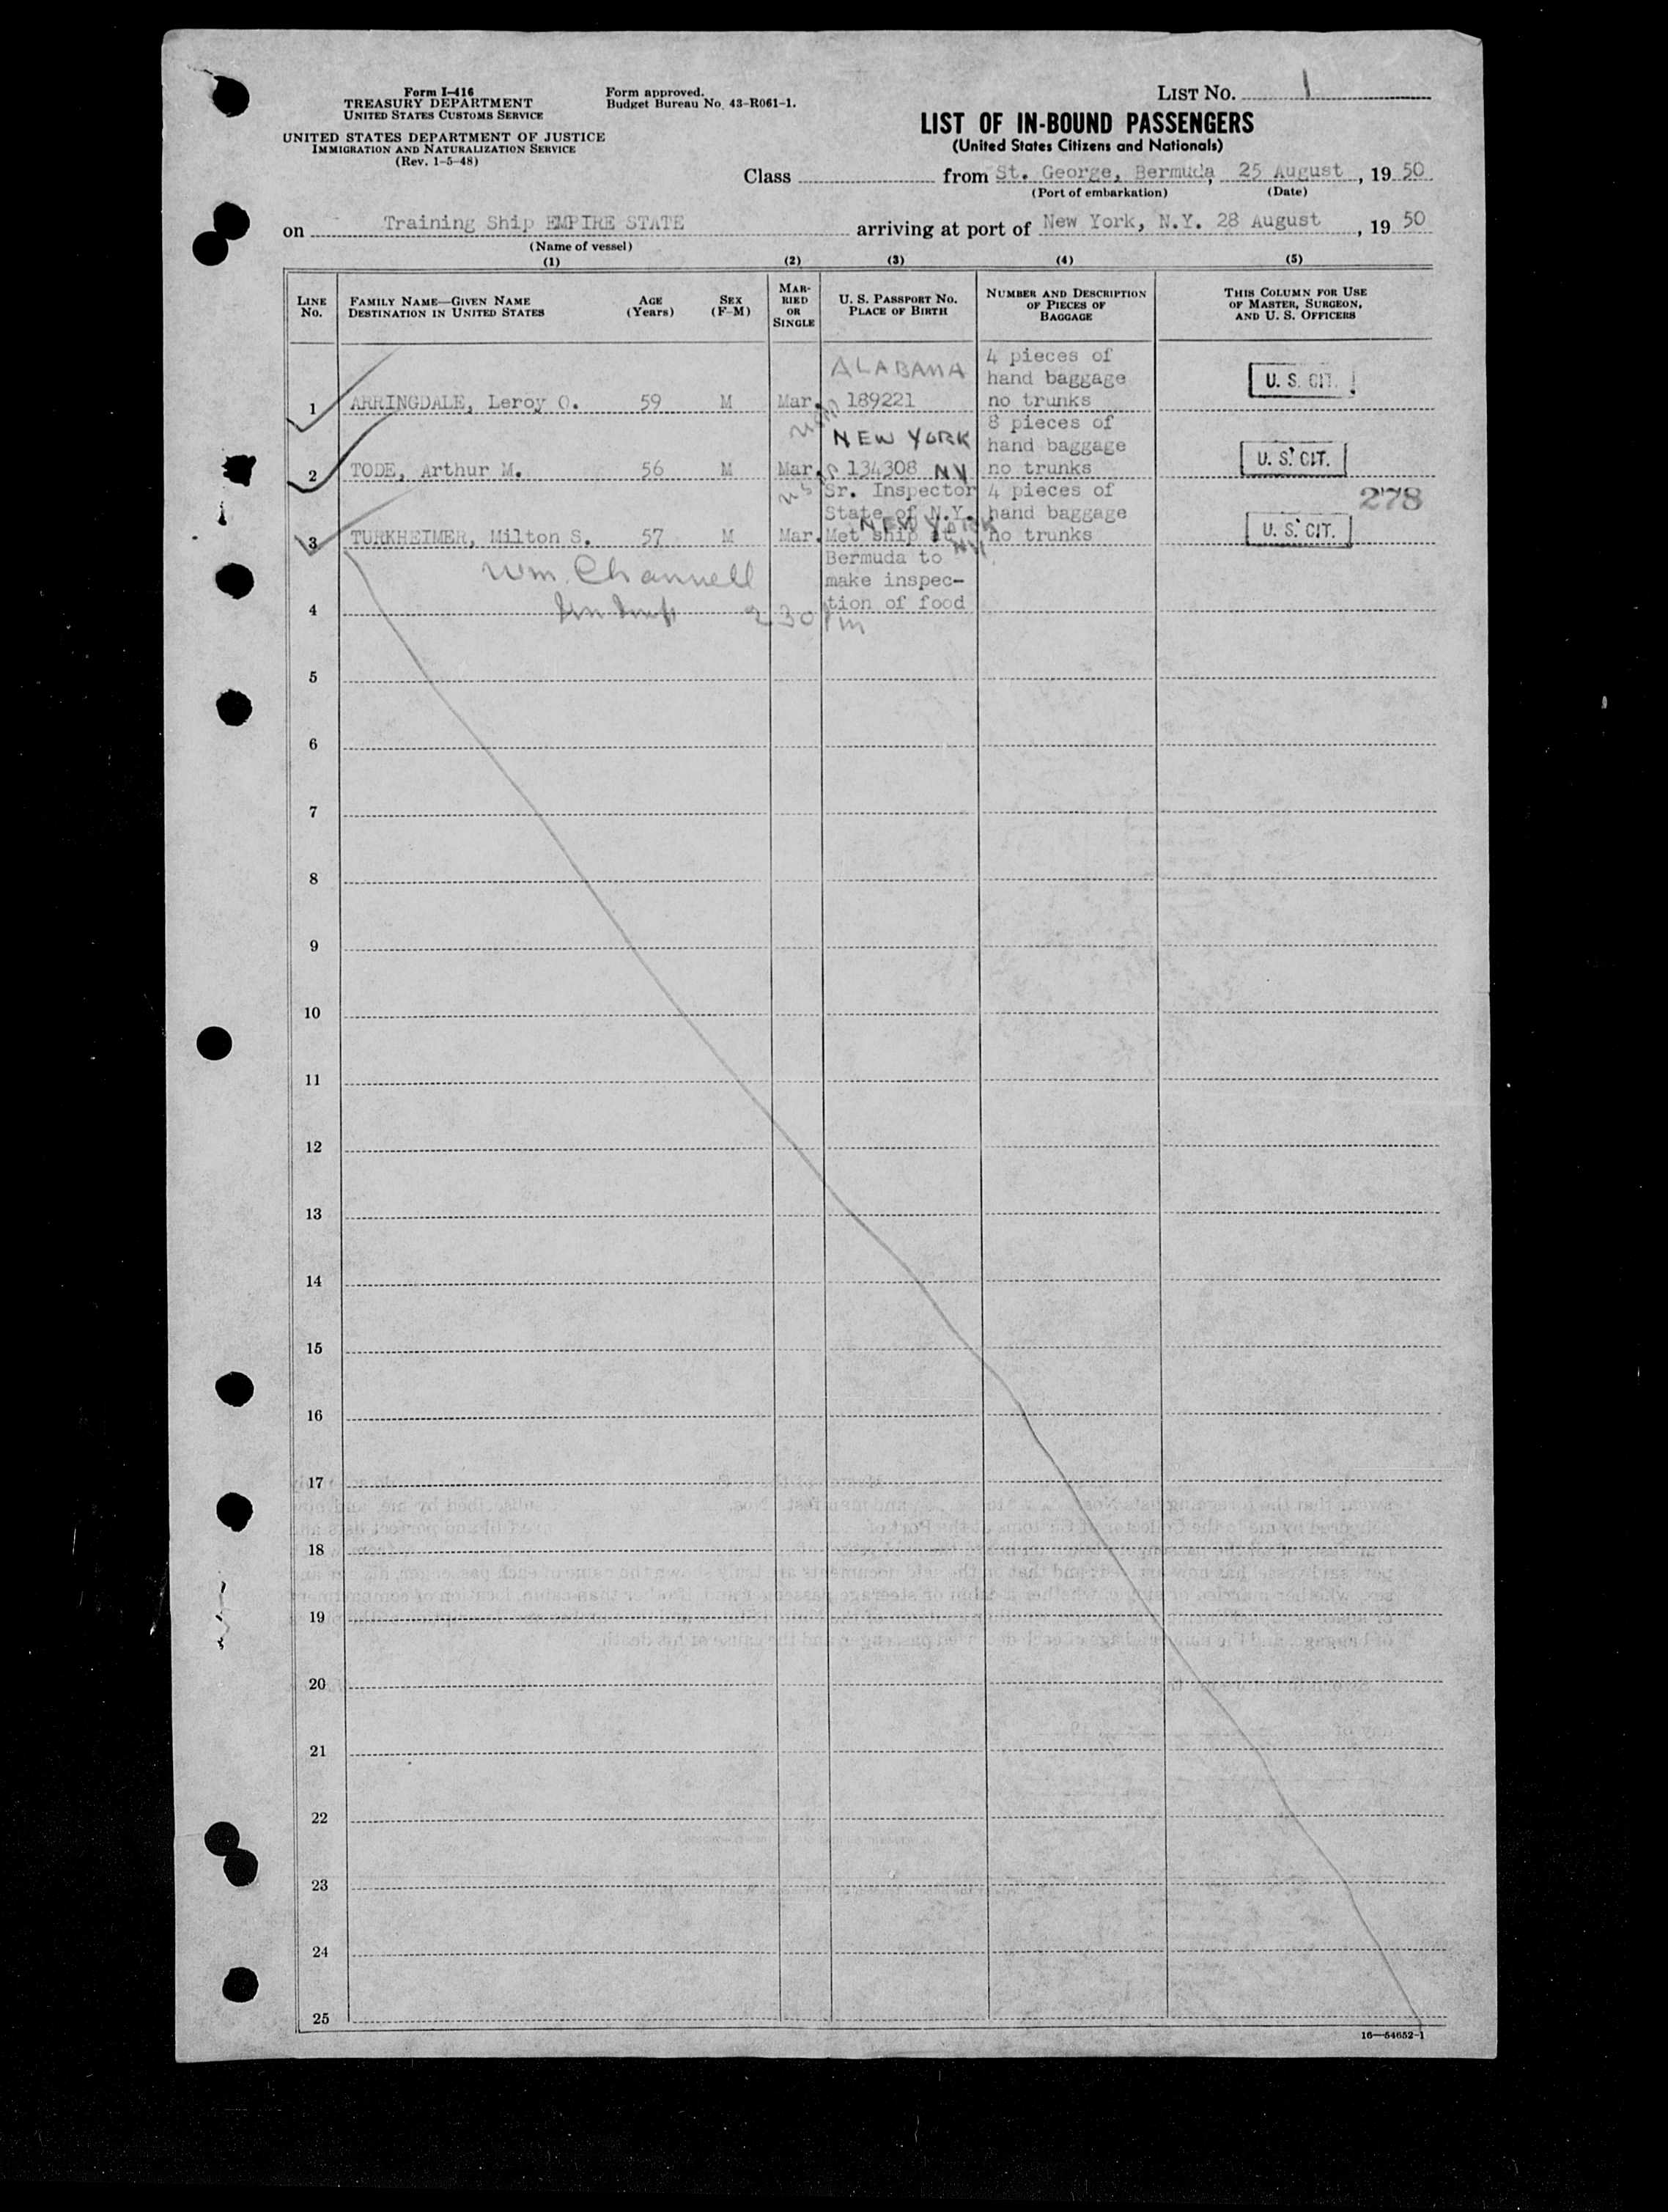 Form I-416
TREASURY DEPARTMENT
UNITED STATES CUSTOMS SERVICE
UNITED STATES DEPARTMENT OF JUSTICE
IMMIGRATION AND NATURALIZATION SERVICE
(Rev. 1-5-48)
Form approved.
Budget Bureau No. 43-R061-1.
LIST No. 1
LIST OF IN-BOUND PASSENGERS
(United States Citizens and Nationals)
Class from St. George, Bermuda, 25 August, 19 50
(Port of embarkation) (Date)
on Training Ship EMPIRE STATE arriving at port of New York, N.Y. 28 August, 19 50
(Name of vessel)
(1) (2) (3) (4) (5)
LINE No.
FAMILY NAME—GIVEN NAME
DESTINATION IN UNITED STATES
AGE (Years)
SEX (F-M)
MARRIED OR SINGLE
U. S. PASSPORT No.
PLACE OF BIRTH
NUMBER AND DESCRIPTION OF PIECES OF BAGGAGE
THIS COLUMN FOR USE OF MASTER, SURGEON, AND U. S. OFFICERS
ALABAMA 4 pieces of
hand baggage U. S. CIT.
1 ARRINGDALE, Leroy O. 59 M Mar. 189221 no trunks
8 pieces of
NEW YORK hand baggage U. S. CIT.
2 TODE, Arthur M. 56 M Mar. 134308 NY no trunks
Sr. Inspector 4 pieces of 278
State of N.Y. hand baggage
NEW YORK U. S. CIT.
3 TURKHEIMER, Milton S. 57 M Mar. Met ship at NY no trunks
Bermuda to
Wm. Channell make inspec-
tion of food
4 2 30 Pm
5
6
7
8
9
10
11
12
13
14
15
16
17
18
19
20
21
22
23
24
25
16—54652-1